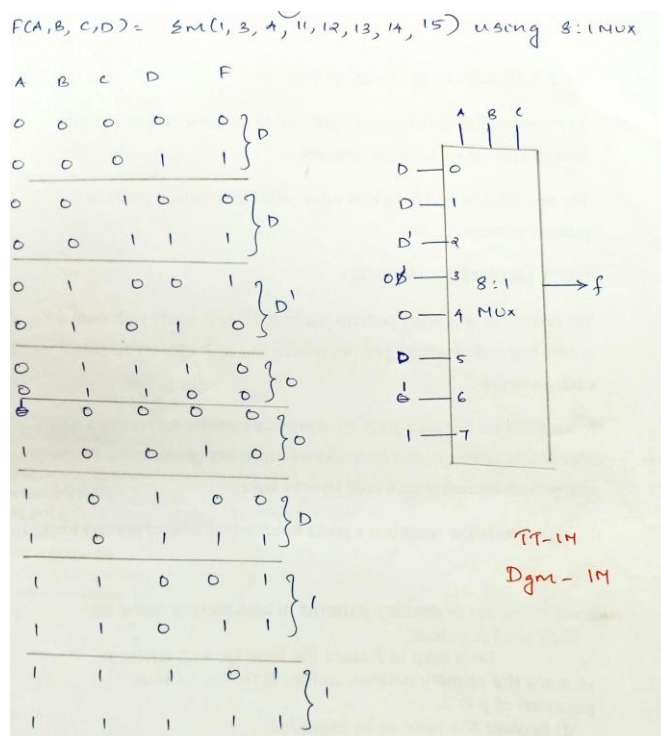 F(A,B,C,D) = Σm(1, 3, 4, 11, 12, 13, 14, 15) using 8:1MUX
A B C D F
0 0 0 0 0
0 0 0 1 1
D
0 0 1 0 0
0 0 1 1 1
D
0 1 0 0 1
0 1 0 1 0
D'
0 1 1 1 0
0 1 1 0 0
0
1 0 0 0 0
1 0 0 1 0
0
1 0 1 0 0
1 0 1 1 1
D
1 1 0 0 1
1 1 0 1 1
1
1 1 1 0 1
1 1 1 1 1
1
A B C
D 0
D 1
D' 2
0 3
0 4
D 5
1 6
1 7
8:1
MUX
f
TT-1M
Dgm-1M